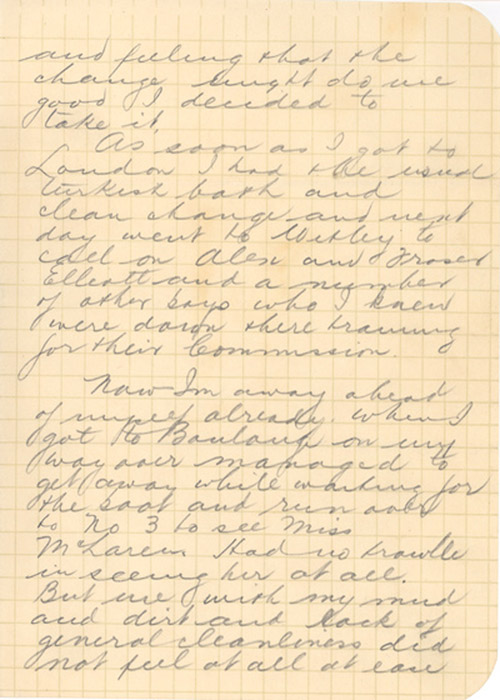 and feeling that the
change might do me
good I decided to
take it.
As soon as I got to
London I had the usual
turkish bath and
clean change and next
day went to Witley to
call on Alex and Fraser
Elliott and a number
of other boys who I knew
were down there training
for their Commission.
Now Im away ahead
of myself already. When I
got to Boulogne on my
way over managed to
get away while waiting for
the boat and run over
to No 3 to see Miss
McLaren Had no trouble
in seeing her at all.
But me with my mud
and dirt and lack of
general cleanliness did
not feel at all at ease